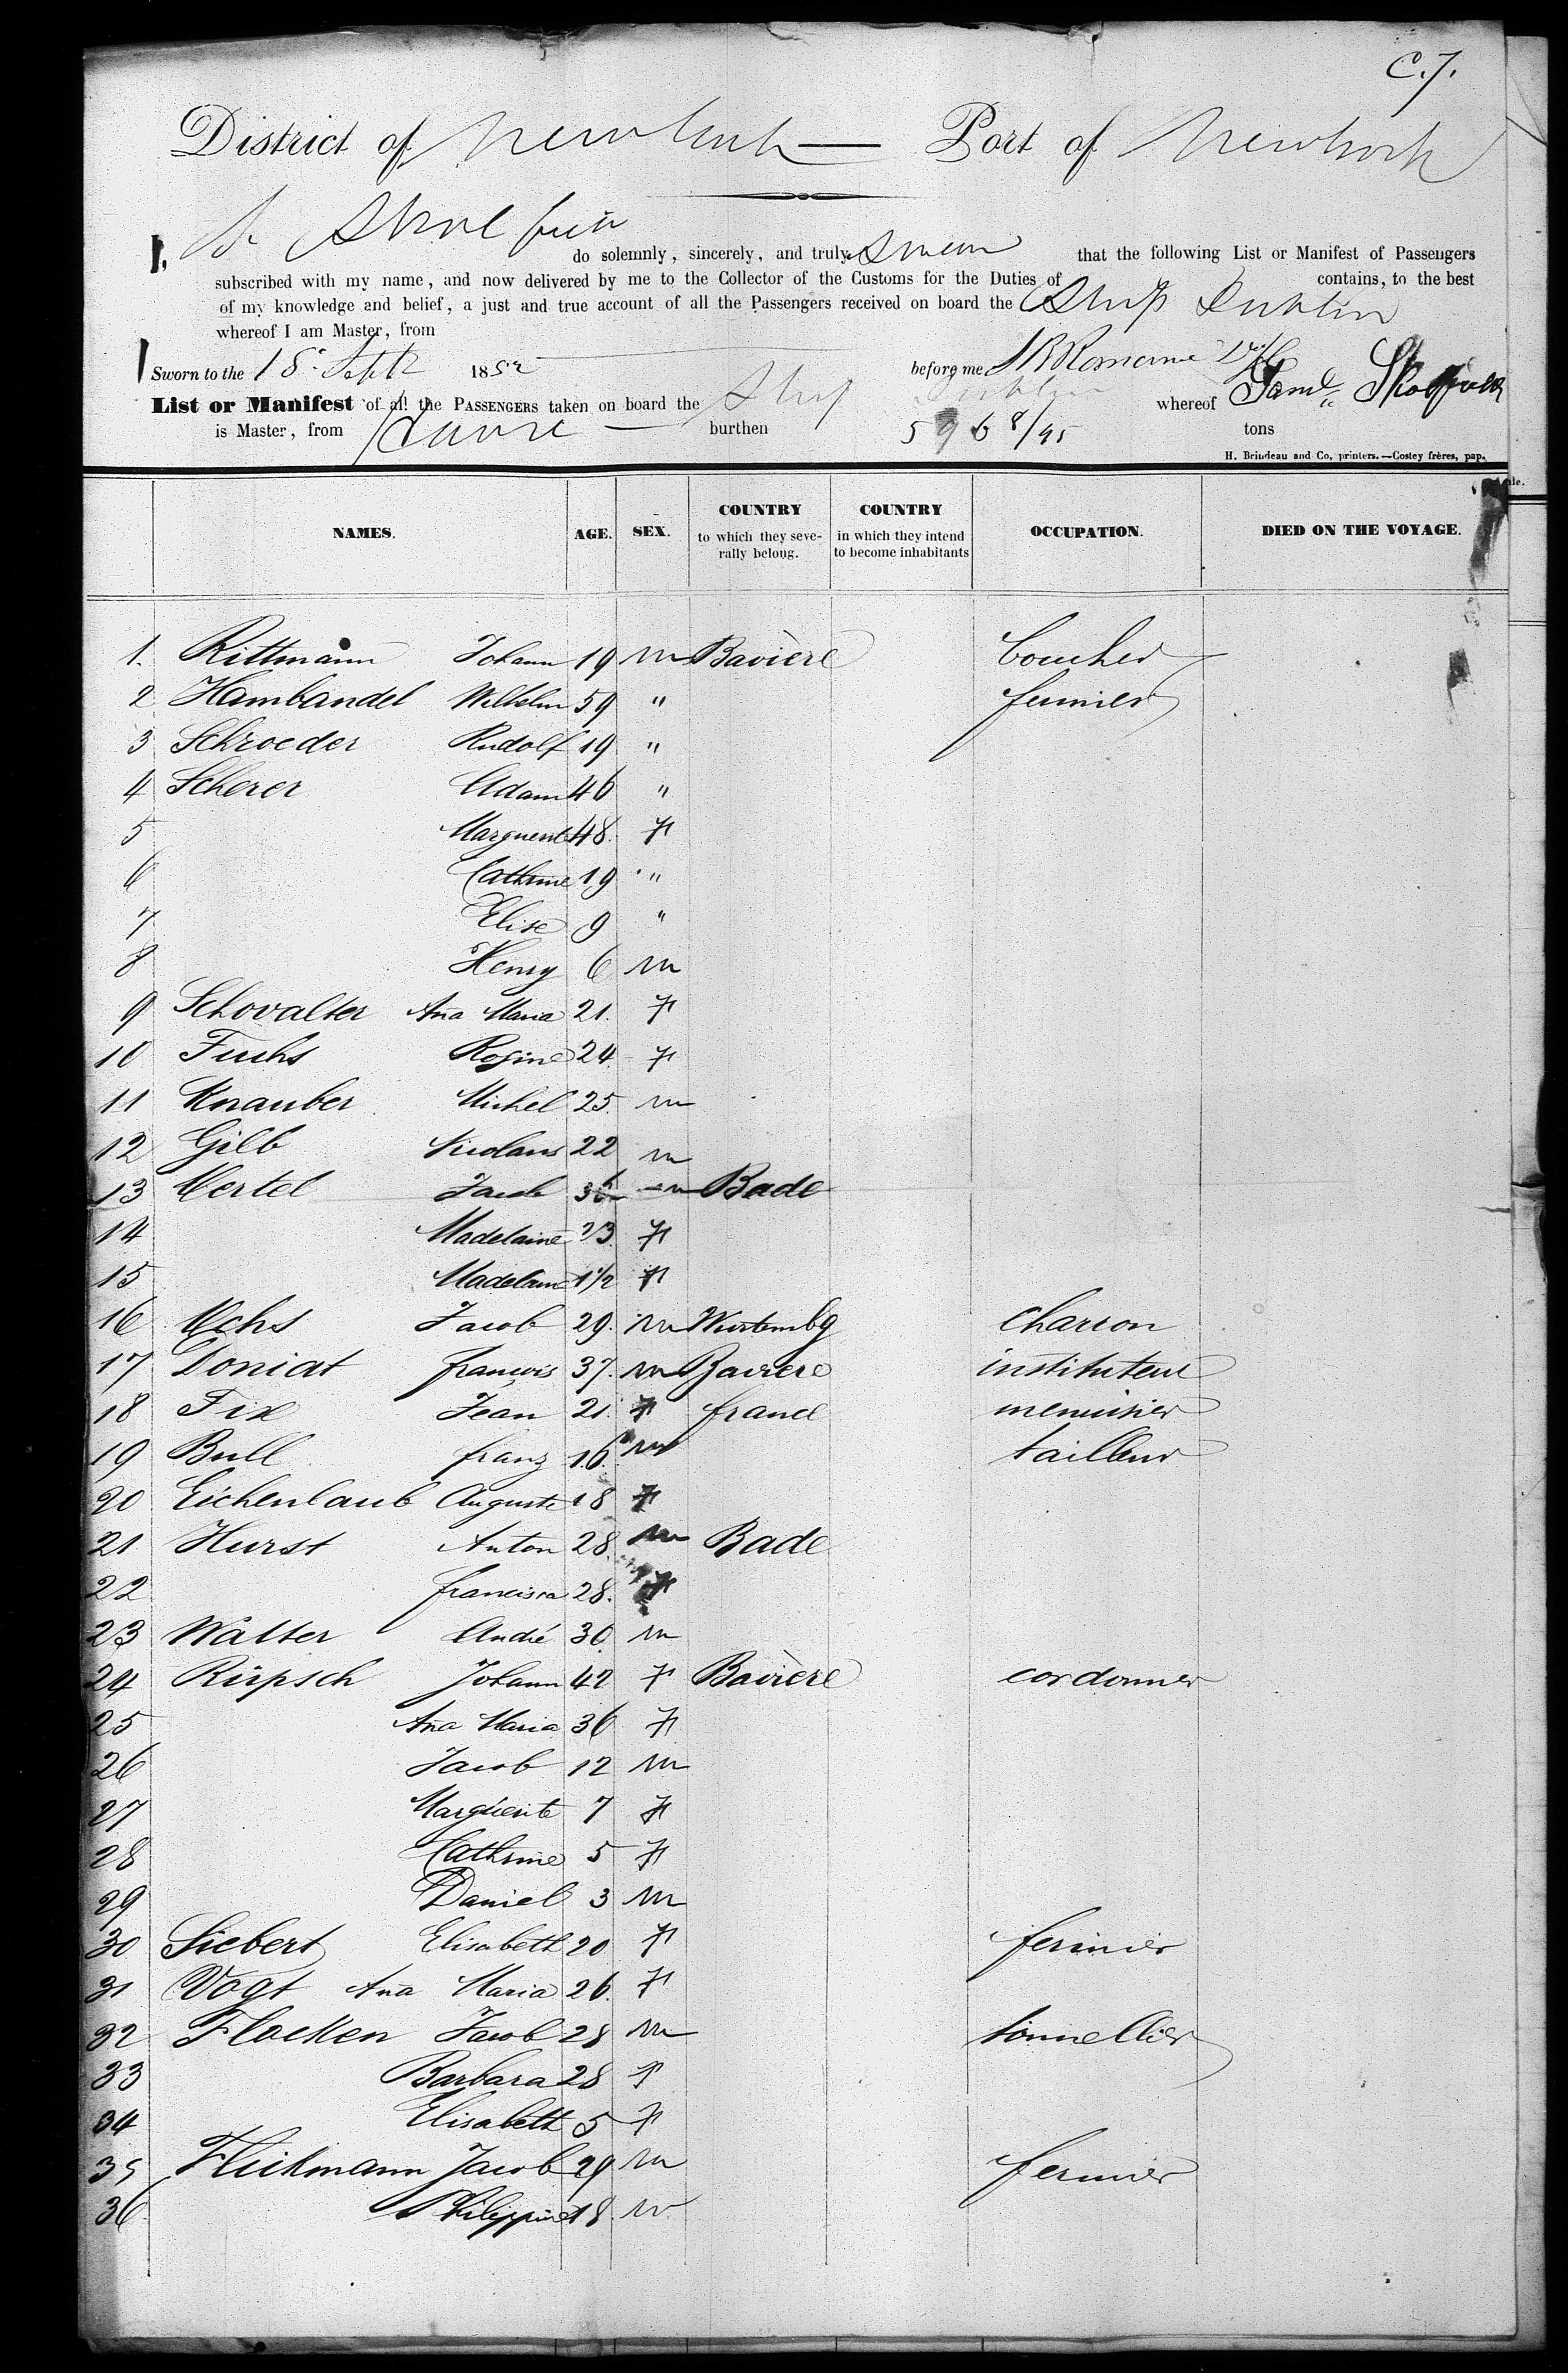 C.7.
District of New York — Port of New York
I, S. Skolfield do solemnly, sincerely, and truly swear that the following List or Manifest of Passengers
subscribed with my name, and now delivered by me to the Collector of the Customs for the Duties of contains, to the best
of my knowledge and belief, a just and true account of all the Passengers received on board the Ship Dublin
whereof I am Master, from
Sworn to the 18 Sept 1852 before me Saml Skolfield
List or Manifest of all the PASSENGERS taken on board the Ship Dublin whereof
is Master, from Havre burthen 596 8/95 tons
H. Brindeau and Co, printers.—Costey frères, pap.
NAMES. AGE. SEX. COUNTRY to which they severally belong. COUNTRY in which they intend to become inhabitants OCCUPATION. DIED ON THE VOYAGE.
1. Rittmann Johann 19 m Bavière boucher
2 Hambandel Wilhelm 59 " fermier
3 Schroeder Rudolf 19 "
4 Scherer Adam 46 "
5 Marguerite 48. F
6 Cathrine 19 "
7 Elise 9 "
8 Henry 6 m
9 Schovalter Aña Maria 21. F
10 Fuchs Rosine 24. F
11 Knauber Michel 25. m
12 Gilb Nicolaus 22 m
13 Mertel Jacob 36 m Bade
14 Madelaine 23. F
15 Madelaine 1 1/2 F
16 Ochs Jacob 29. m Wurtembg charron
17 Doniat françois 37. m Baviere instituteur
18 Fix Jean 21. F france menuisier
19 Bull franz 16. m tailleur
20 Eichenlaub Auguste 18 F
21 Hurst Anton 28. m Bade
22 francisca 28. F
23 Walter André 30. m
24 Rüpsch Johann 42 F Bavière cordonner
25 Aña Maria 36 F
26 Jacob 12 m
27 Marguerite 7 F
28 Cathrine 5 F
29 Daniel 3 m
30 Siebert Elisabeth 20 F fermier
31 Vogt Aña Maria 26. F
32 Flocken Jacob 28 m tonnellier
33 Barbara 28 F
34 Elisabeth 5 F
35 Flickmann Jacob 29 m fermier
36. Philippine 18. m